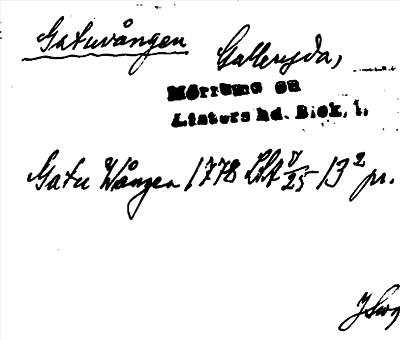 Gatuvången Galleryda,
Mörrums sn
Listers hd. Blek. l.
Gatu Wången 1778 LSA V/25 13² pr.